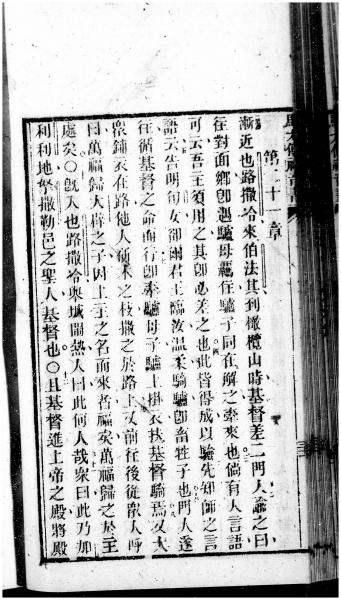 第二十一章
漸近也路撒冷來伯法其到橄欖山時基督差二門人諭之曰
往對面鄉卽遇驢母繩住驢子同在解之牽來也倘有人言語
可云吾主須用之其卽必差之也此皆得成以驗先知師之言
語云告明旬女卻爾君主臨汝溫柔騎驢卽畜牲子也門人遂
往循基督之命而行卽牽驢母子驢上掛衣扶基督騎焉又大
眾鋪衣在路他人斫木之枝撒之於路上又前行後從眾人呼
曰萬福歸大辟之子因上主之名而來者福矣萬福歸之於至
處矣〇旣入也路撒冷與城鬧熱人曰此何人哉眾曰此乃加
利利地拏撒勒邑之聖人基督也〇且基督進上帝之殿將殿